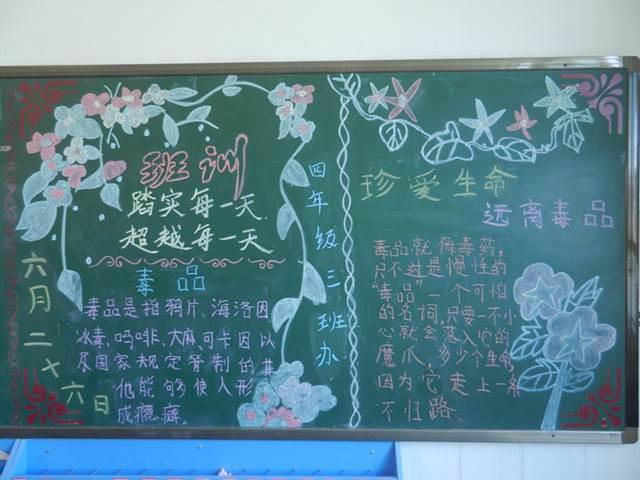 班训
踏实每一天
超越每一天
毒品
毒品是指鸦片、海洛因
冰毒、吗啡、大麻可卡因以
及国家规定管制的其
他能够使人形
成瘾癖。
六月二十六日
四年级三班办
珍爱生命
远离毒品
毒品就像毒药，
只不过是慢性的
“毒品”一个可怕
的名词，只要一不小
心就会落入它的
魔爪，多少个生命
因为它走上一条
不归路。